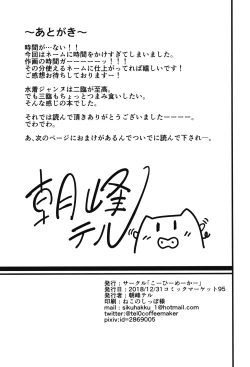 ～あとがき～
時間が…ない！！
今回はネームに時間をかけすぎてしまいました。
作画の時間ガーーーーーッ！！！
その分使えるネームに仕上がってれば嬉しいです！
ご感想お待ちしておりますー！
水着ジャンヌは二臨が至高。
でも三臨もちょっとつまみ食いしたい。
そんな感じの本でした。
それでは読んで頂きありがとうございましたーーーー
でわでわ。
あ、次のページにおまけがあるんでついでに読んで下され―。
朝峰
テル
発行：サークル「こーひーめーかー」
発行日：2018/12/31コミックマーケット95
発行者：朝峰テル
印刷：ねこのしっぽ様
mail：sikuhakku_1@hotmail.com
twitter:@tel0coffeemaker
pixiv:id=2869005